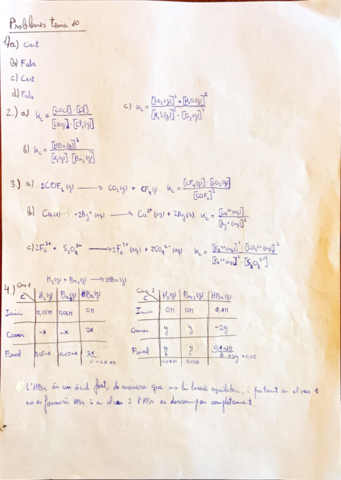 Problemes tema 10
1) a) Cert
b) Fals
c) Cert
d) Fals
2.) a) Kc = [COCl] · [Cl] / [CO(g)] · [Cl₂(g)]
c) Kc = [SO₂(g)]² · [H₂O(g)]² / [H₂S(g)]² · [O₂(g)]³
b) Kc = [HBr(g)]² / [H₂(g)] · [Br₂(g)]
3.) a) 2COF₂(g) → CO₂(g) + CF₄(g) Kc = [CF₄(g)] · [CO₂(g)] / [COF₂]²
b) Cu(s) + 2Ag⁺(aq) → Cu²⁺(aq) + 2Ag(s) Kc = [Cu²⁺(aq)] / [Ag⁺(aq)]²
c) 2Fe²⁺ + S₂O₈²⁻ → 2Fe³⁺(aq) + 2SO₄²⁻(aq) Kc =
4.) Cas 1 H₂(g) + Br₂(g) → 2HBr(g)
C H₂(g) Br₂(g) HBr(g)
Inici 0,05M 0,05M 0M
Canvi -x -x 2x
Final 0,05-x 0,05-x 2x
Cas 2
C H₂(g) Br₂(g) HBr(g)
Inici 0M 0M 0,1M
Canvi y y -2y
Final y y 0,1-2y
L'HBr és un àcid fort, de manera que no hi haurà equilibri, i per tant en el cas 1
es HBr i en el cas 2 l'HBr es descompon completament.